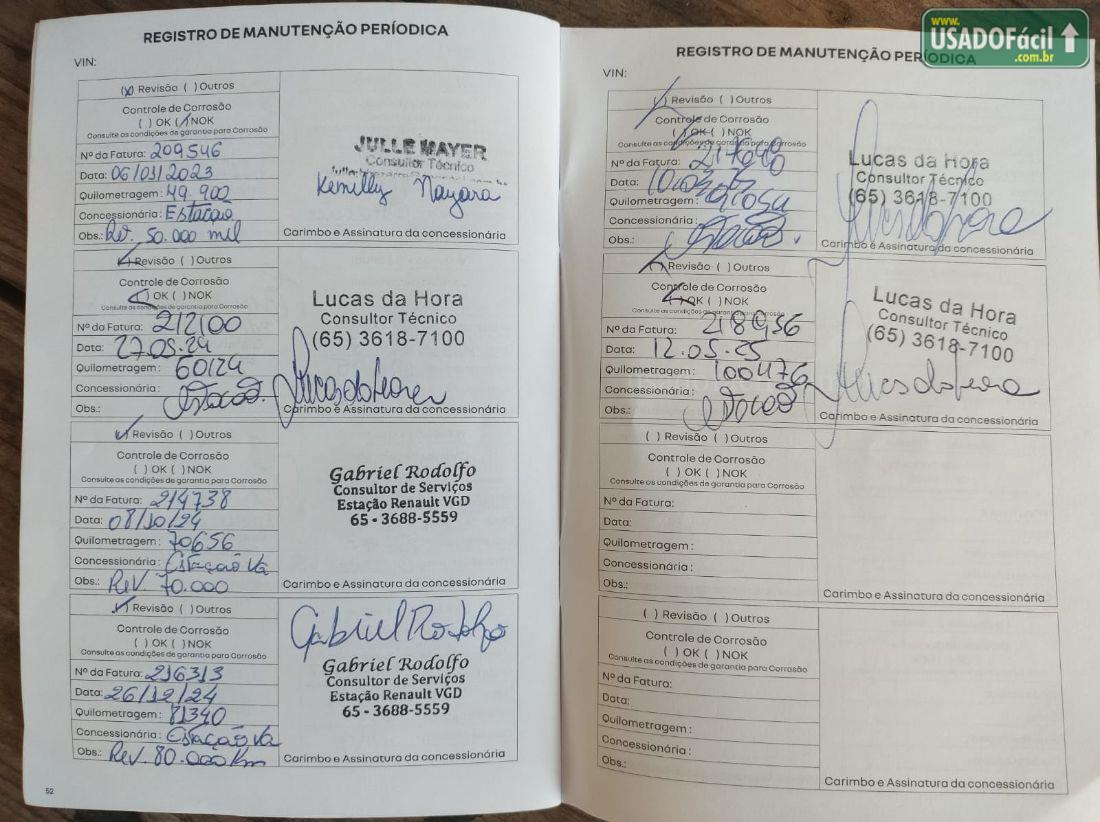 www.
USADOFácil
.com.br
REGISTRO DE MANUTENÇÃO PERÍODICA
VIN:
(x) Revisão ( ) Outros
Controle de Corrosão
( ) OK (/) NOK
Consulte as condições de garantia para Corrosão
Nº da Fatura: 209546
Data: 06/03/2023
Quilometragem: 49.900
Concessionária: Estação
Obs.: Rev. 50.000 mil
JULLE MAYER
Consultor Técnico
Kemilly Nayara
Carimbo e Assinatura da concessionária
(✓) Revisão ( ) Outros
Controle de Corrosão
(✓) OK ( ) NOK
Consulte as condições de garantia para Corrosão
Nº da Fatura: 212100
Data: 27.05.24
Quilometragem: 60124
Concessionária: Estacao.
Obs.:
Lucas da Hora
Consultor Técnico
(65) 3618-7100
Lucas da Hora
Carimbo e Assinatura da concessionária
(✓) Revisão ( ) Outros
Controle de Corrosão
( ) OK ( ) NOK
Consulte as condições de garantia para Corrosão
Nº da Fatura: 214738
Data: 08/10/24
Quilometragem: 70656
Concessionária: Estação Va
Obs.: Rev. 70.000
Gabriel Rodolfo
Consultor de Serviços
Estação Renault VGD
65 - 3688-5559
Carimbo e Assinatura da concessionária
(✓) Revisão ( ) Outros
Controle de Corrosão
( ) OK ( ) NOK
Consulte as condições de garantia para Corrosão
Nº da Fatura: 216313
Data: 26/12/24
Quilometragem: 81340
Concessionária: Estação Va
Obs.: Rev. 80.000 Km
Gabriel Rodolfo
Gabriel Rodolfo
Consultor de Serviços
Estação Renault VGD
65 - 3688-5559
Carimbo e Assinatura da concessionária
52
REGISTRO DE MANUTENÇÃO PERÍODICA
VIN:
(✓) Revisão ( ) Outros
Controle de Corrosão
(✓) OK ( ) NOK
Consulte as condições de garantia para Corrosão
Nº da Fatura:
Data:
Quilometragem:
Concessionária: Estacao.
Obs.:
Lucas da Hora
Consultor Técnico
(65) 3618-7100
Lucas da Hora
Carimbo e Assinatura da concessionária
(✓) Revisão ( ) Outros
Controle de Corrosão
(✓) OK ( ) NOK
Consulte as condições de garantia para Corrosão
Nº da Fatura: 218956
Data: 12.05.25
Quilometragem: 100476
Concessionária: Estacao
Obs.:
Lucas da Hora
Consultor Técnico
(65) 3618-7100
Lucas da Hora
Carimbo e Assinatura da concessionária
( ) Revisão ( ) Outros
Controle de Corrosão
( ) OK ( ) NOK
Consulte as condições de garantia para Corrosão
Nº da Fatura:
Data:
Quilometragem:
Concessionária:
Obs.:
Carimbo e Assinatura da concessionária
( ) Revisão ( ) Outros
Controle de Corrosão
( ) OK ( ) NOK
Consulte as condições de garantia para Corrosão
Nº da Fatura:
Data:
Quilometragem:
Concessionária:
Obs.:
Carimbo e Assinatura da concessionária